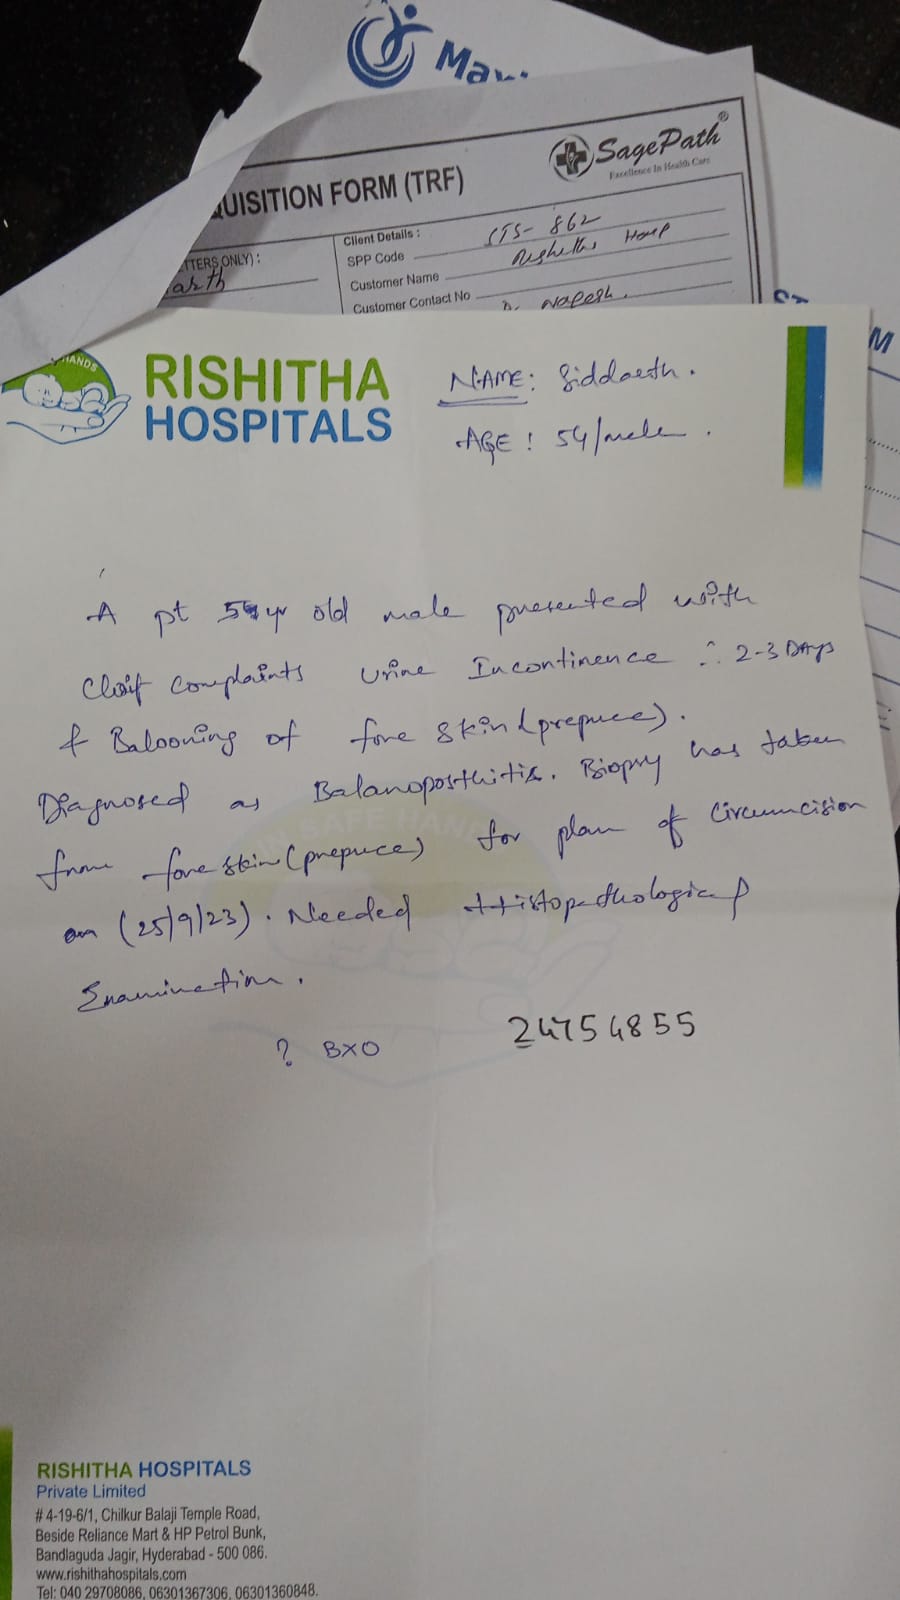 May
SagePath®
Excellence In Health Care
QUISITION FORM (TRF)
Client Details :
SPP Code STS- 862
TTERS ONLY) :
arth
Customer Name Rishitha Hosp
Customer Contact No
Dr. Nagesh.
HANDS
RISHITHA
HOSPITALS
NAME: Siddarth.
AGE : 54/male.
A pt 54yr old male presented with
Cheif Complaints Urine Incontinence ∴ 2-3 Days
& Balooning of fore skin (prepuce).
Diagnosed as Balanoposthitis. Biopsy has taken
from fore skin (prepuce) for plan of Circumcision
on (25/9/23). Needed Histopathological
Examination.
? BXO
24754855
IN SAFE HANDS
RISHITHA HOSPITALS
Private Limited
# 4-19-6/1, Chilkur Balaji Temple Road,
Beside Reliance Mart & HP Petrol Bunk,
Bandlaguda Jagir, Hyderabad - 500 086.
www.rishithahospitals.com
Tel: 040 29708086, 06301367306, 06301360848.